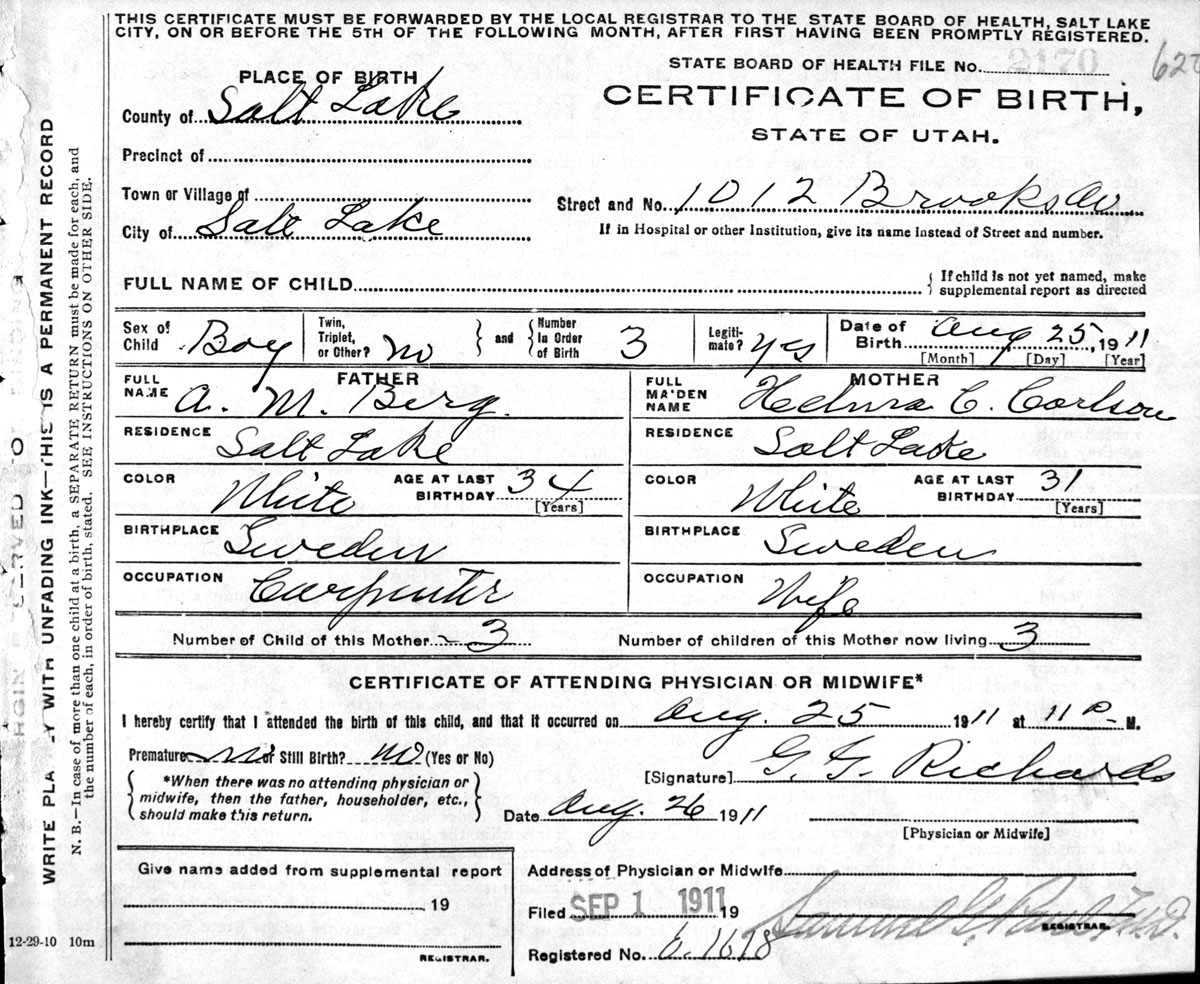 THIS CERTIFICATE MUST BE FORWARDED BY THE LOCAL REGISTRAR TO THE STATE BOARD OF HEALTH, SALT LAKE
CITY, ON OR BEFORE THE 5TH OF THE FOLLOWING MONTH, AFTER FIRST HAVING BEEN PROMPTLY REGISTERED.
STATE BOARD OF HEALTH FILE No. 2170
PLACE OF BIRTH
CERTIFICATE OF BIRTH,
STATE OF UTAH.
County of Salt Lake
Precinct of
Town or Village of
Street and No. 1012 Brooks Av
City of Salt Lake
If in Hospital or other Institution, give its name instead of Street and number.
FULL NAME OF CHILD
{ If child is not yet named, make
supplemental report as directed
Sex of Child Boy
Twin, Triplet, or Other? no } and { Number In Order of Birth 3
Legiti-mate? yes
Date of Birth Aug 25, 1911
[Month] [Day] [Year]
FATHER
FULL NAME A. M. Berg.
RESIDENCE Salt Lake
COLOR White AGE AT LAST BIRTHDAY 34 [Years]
BIRTHPLACE Sweden
OCCUPATION Carpenter
MOTHER
FULL MAIDEN NAME C. Carlson
RESIDENCE Salt Lake
COLOR White AGE AT LAST BIRTHDAY 31 [Years]
BIRTHPLACE Sweden
OCCUPATION Wife
Number of Child of this Mother 3 Number of children of this Mother now living 3
CERTIFICATE OF ATTENDING PHYSICIAN OR MIDWIFE*
I hereby certify that I attended the birth of this child, and that it occurred on Aug. 25 1911 at 11 P. M.
Premature no or Still Birth? no (Yes or No)
{ *When there was no attending physician or
midwife, then the father, householder, etc.,
should make this return. }
[Signature] G. G. Richards
Date Aug. 26 1911
[Physician or Midwife]
Give name added from supplemental report
19
REGISTRAR.
Address of Physician or Midwife
Filed SEP 1 1911 19
REGISTRAR.
Registered No. 6.1618
WRITE PLA LY WITH UNFADING INK—THIS IS A PERMANENT RECORD
N. B.—In case of more than one child at a birth, a SEPARATE RETURN must be made for each, and
the number of each, in order of birth, stated. SEE INSTRUCTIONS ON OTHER SIDE.
12-29-10 10m